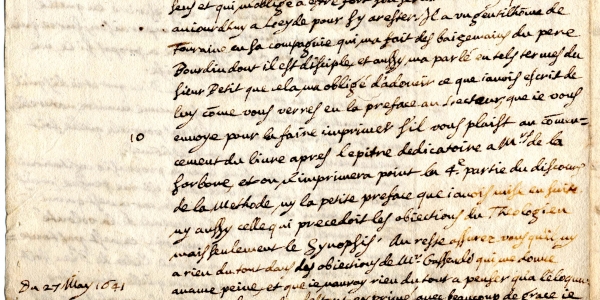 sens et qui m'oblige a estre fort
aujourdhuy a Leyde pour s'y arester. Il a un gentilhōme de
Touraine en sa compagnie qui ma fait des baisemains du pere
Bourdin dont il est disciple, et aussy ma parlé en tels termes du
sieur Petit que cela ma obligé d'adoucir ce que iauois escrit de
luy cōme vous verres en la preface au Lecteur, que ie vous
10
envoye pour la faire imprimer s'il vous plaist au comen-
cement du livre apres l'epitre dedicatoire a Mrs de la
Sorbone, et on n'imprimera point la 4e partie du discours
de la Methode, ny la petite preface que iauois mise en suite
ny aussy celle qui precedoit les obiections du Theologien
mais seulement le Synopsis. Au reste assurez vous qu'il n'y
a rien du tout dans les obiections de Mr Gassendi qui me donne
aucune peine et que ie n'auray rien du tout a penser qu'a l'eloquence
Du 27 May 1641
avec beaucoup de grace